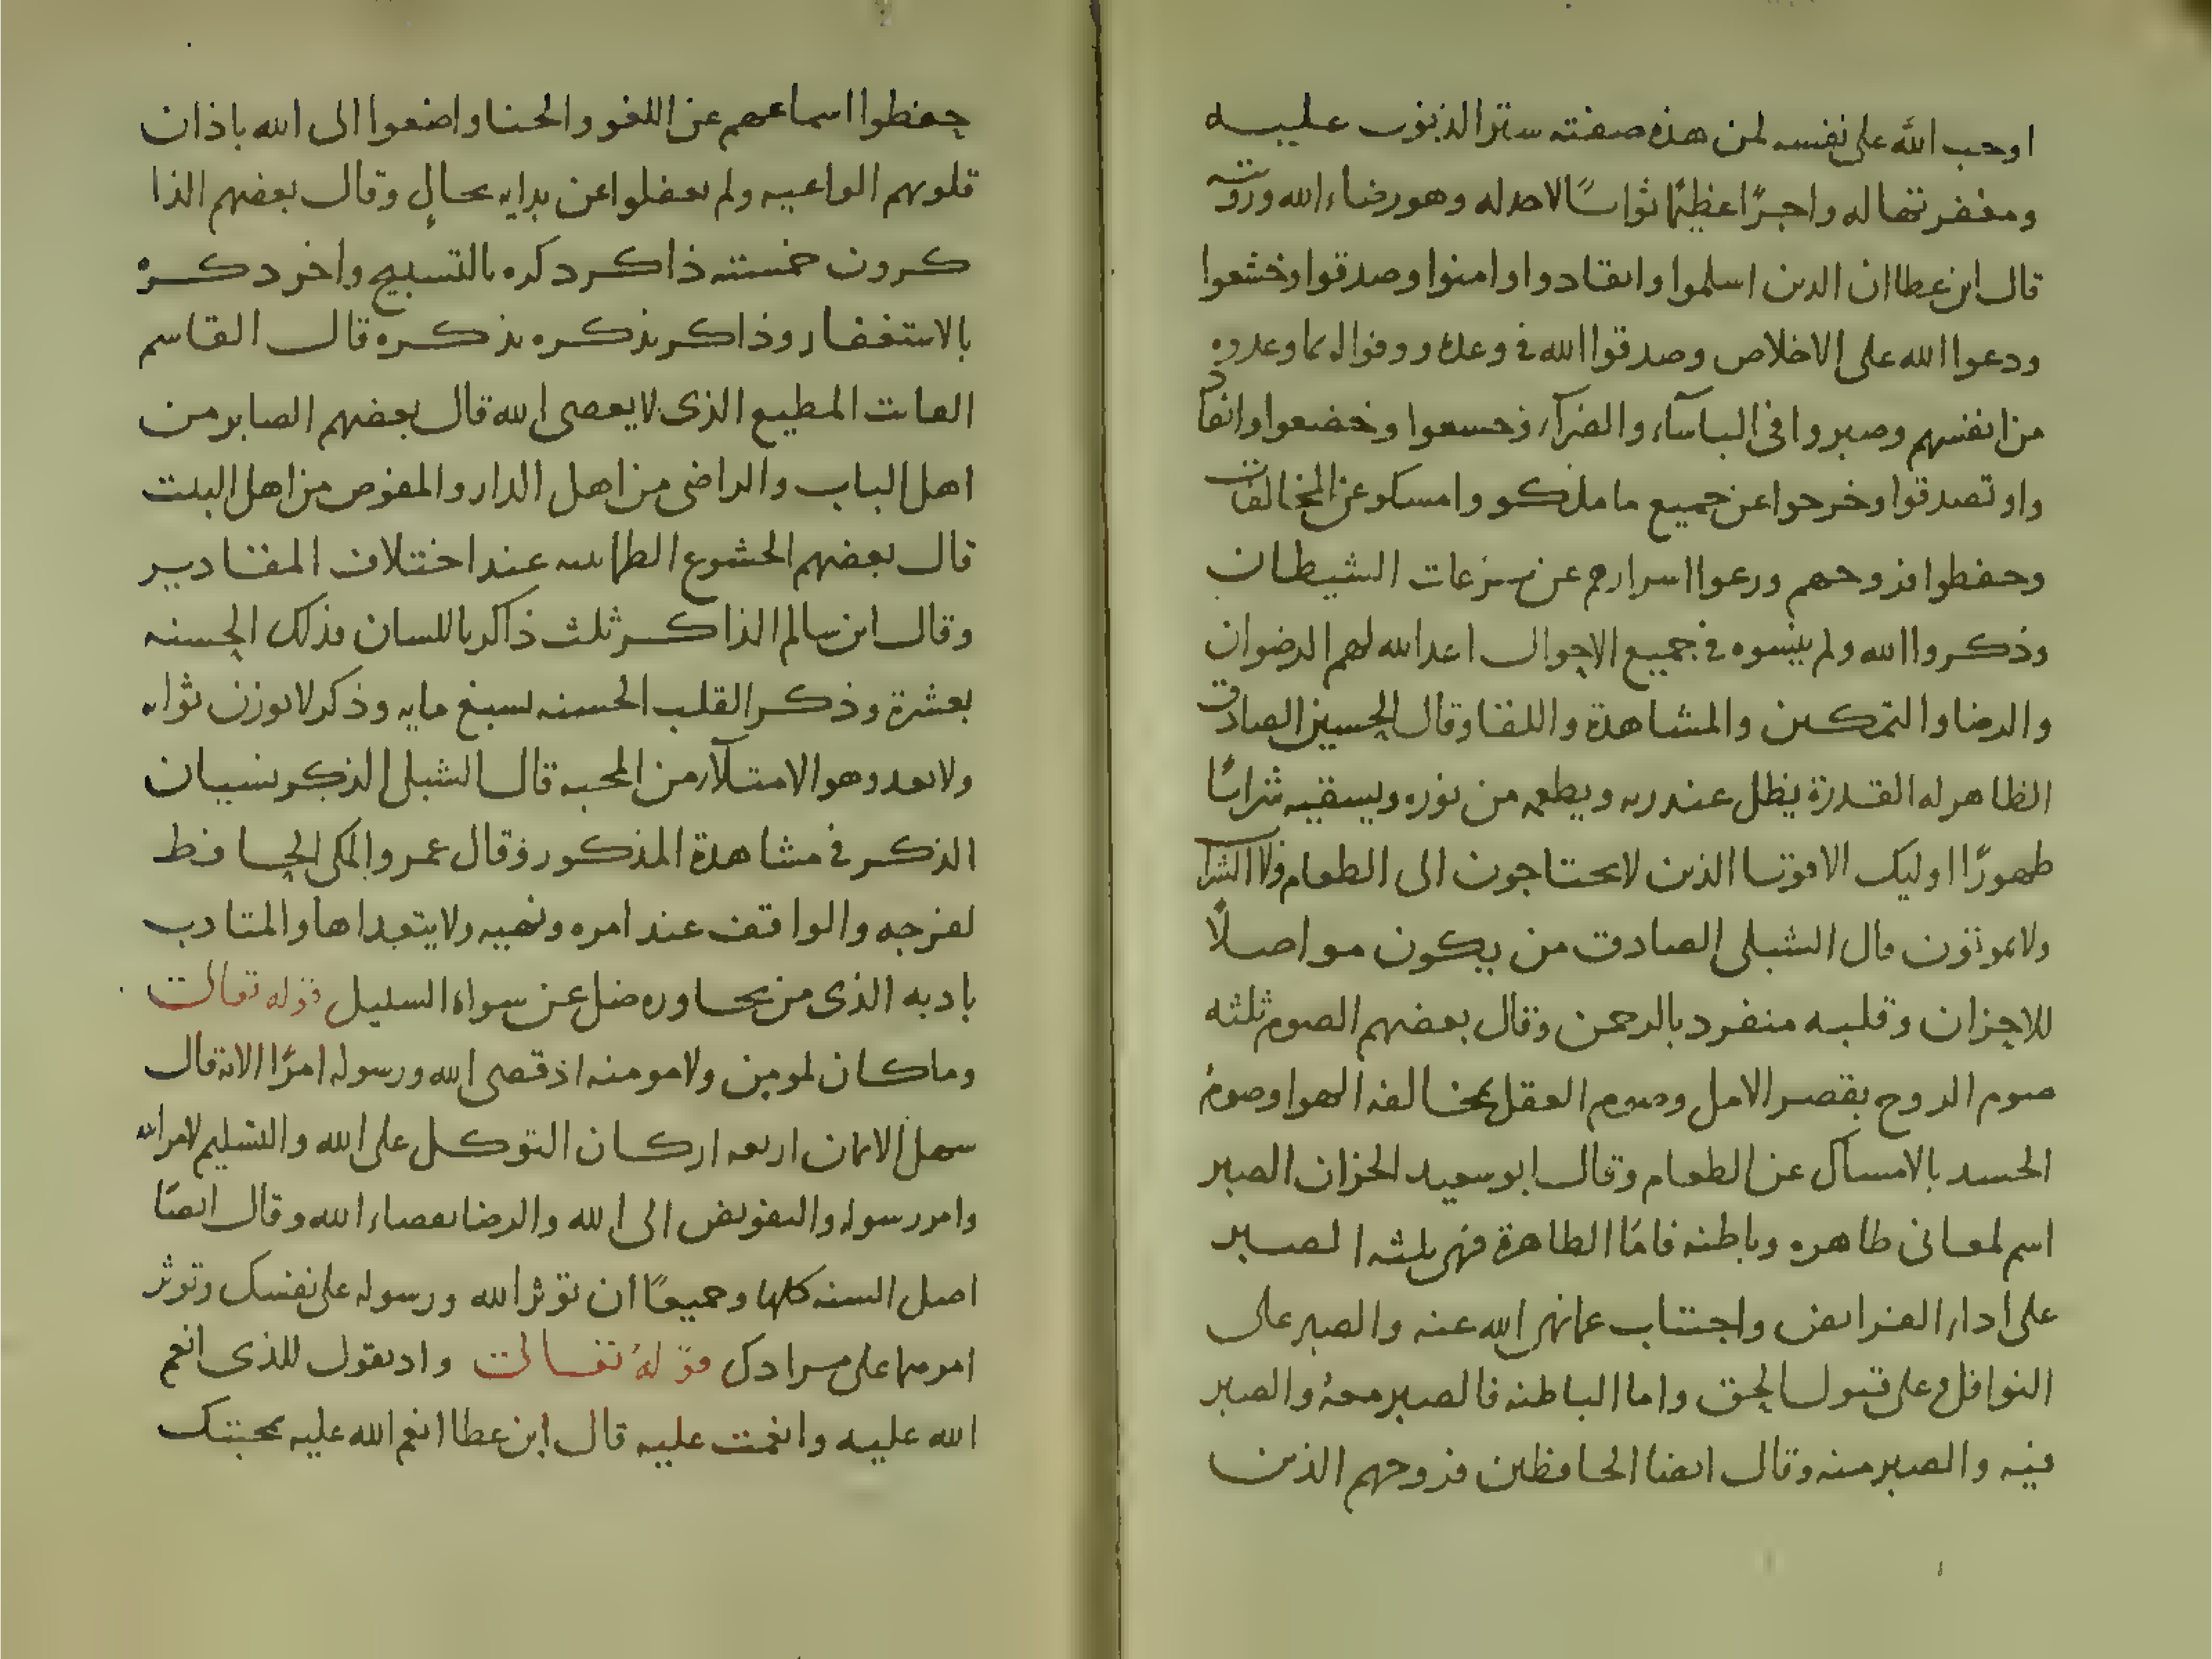 اوحب الله على نفسه لمن هذه صفته ستر الذنوب عليه
ومغفرتها له واجرًا عظيمًا ثوابًا لاحد له وهو رضاء الله ورؤيته
قال ابن عطا ان الدين اسلموا وانقادوا وامنوا وصدقوا وخشعوا
ودعوا الله على الاخلاص وصدقوا الله في وعده ووفوا له بما وعدوه
من انفسهم وصبروا في الباسآء والضرآء وخسعوا وخضعوا وانقا
دوا وتصدقوا وخرجوا عن جميع ما ملكو وامسكو عن المخالفات
وحفظوا فروحهم ورعوا اسرارهم عن نزعات الشيطان
وذكروا الله ولم ينسوه في جميع الاحوال اعد الله لهم الرضوان
والرضا والتمكين والمشاهدة واللقا وقال الحسين الصادق
الظاهر له القدرة يظل عند ربه ويطعمه من نوره ويسقيه شرابًا
طهورًا اوليك الاقويا الذين لا يحتاجون الى الطعام ولا الشرا
ولا يموتون قال الشبلى الصادق من يكون مواصلًا
للاحزان وقلبه منفرد بالرحمن وقال بعضهم الصوم ثلثه
صوم الروح بقصر الامل وصوم العقل بمخالفه الهوا وصوم
الحسد بالامساك عن الطعام وقال ابو سعيد الخزان الصبر
اسم لمعانى ظاهره وباطنه فامّا الظاهرة فهى ثلثه الصبر
على ادا الفرايض واجتناب عما نهى الله عنه والصبر على
النوافل وعلى قبول الحق واما الباطنه فالصبر معه والصبر
فيه والصبر منه وقال ايضا الحافظين فروجهم الذين
حفظوا اسماعهم عن اللغو والخنا واضعوا الى الله باذان
قلوبهم الواعيه ولم يغفلوا عن ندايه بحالٍ وقال بعضهم الذا
كرون خمسته ذاكر دكره بالتسبيح واخر دكره
بالاستغفار وذاكر بذكره بذكره قال القاسم
القانت المطيع الذى لا يعصى الله قال بعضهم الصابر من
اهل الباب والراضى من اهل الدار والمفوض من اهل البيت
قال بعضهم الخشوع الطمانينه عند اختلاف المقادير
وقال ابن سالم الذاكر ثلث ذاكر باللسان فذلك الحسنه
بعشرة وذكر القلب الحسنه بسبع مايه وذكر لا يوزن ثوابه
ولا يعد وهو الامتلآء من المحبه قال الشبلى الذكر نسيان
الذكر في مشاهدة المذكور وقال عمرو المكى الحافظ
لفرجه والواقف عند امره ونهيه ولا يتعداها والمتادب
بادبه الذى من يحاوره ضل عن سواء السبيل قوله تعالى
وماكان لمومن ولا مومنه اذ قضى الله ورسوله امرًا الايه قال
سهل الايمان اربعه اركان التوكل على الله والتسليم لامر الله
وامر رسوله والتفويض الى الله والرضا بقضاء الله وقال ايضًا
اصل السنه كلها وحميعًا ان توثر الله ورسوله على نفسك وتوثر
امرهما على مرادك قوله تعالى واد تقول للذى انعم
الله عليه وانعمت عليه قال ابن عطا انعم الله عليه بمحبتك